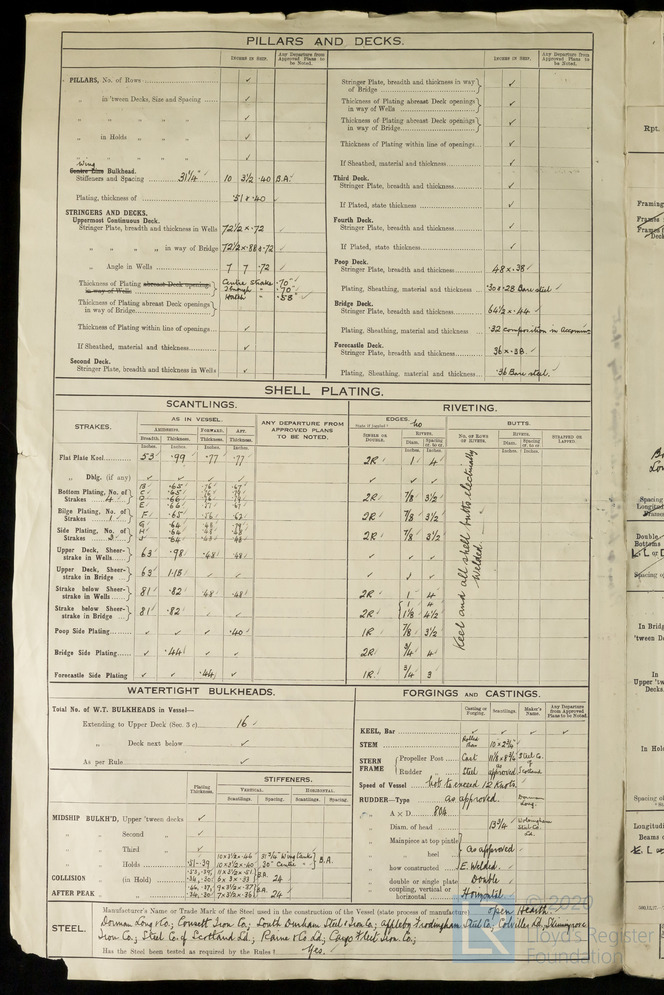 PILLARS AND DECKS.
INCHES IN SHIP. Any Departure from Approved Plans to be Noted.
PILLARS, No. of Rows ✓
„ in 'tween Decks, Size and Spacing ✓
„ „ „ „ „ ✓
„ in Holds „ „ ✓
„ „ „ „ ✓
Wing
Centre Line Bulkhead.
Stiffeners and Spacing 31¼" 10 3½ .40 B.A.
Plating, thickness of .51 & .40
STRINGERS AND DECKS.
Uppermost Continuous Deck.
Stringer Plate, breadth and thickness in Wells 72½ x .72
„ „ „ „ in way of Bridge 72½ x .88 & .72 ✓
„ Angle in Wells 7 7 .72 ✓
Thickness of Plating abreast Deck openings in way of Wells Centre Strake .70"
„ .70"
„ .58"
Thickness of Plating abreast Deck openings in way of Bridge
Thickness of Plating within line of openings ✓
If Sheathed, material and thickness ✓
Second Deck.
Stringer Plate, breadth and thickness in Wells ✓
INCHES IN SHIP. Any Departure from Approved Plans to be Noted.
Stringer Plate, breadth and thickness in way of Bridge ✓
Thickness of Plating abreast Deck openings in way of Wells ✓
Thickness of Plating abreast Deck openings in way of Bridge ✓
Thickness of Plating within line of openings ✓
If Sheathed, material and thickness ✓
Third Deck.
Stringer Plate, breadth and thickness ✓
If Plated, state thickness ✓
Fourth Deck.
Stringer Plate, breadth and thickness ✓
If Plated, state thickness ✓
Poop Deck.
Stringer Plate, breadth and thickness 48 x .38 ✓
Plating, Sheathing, material and thickness .30 & .28 Bare steel ✓
Bridge Deck.
Stringer Plate, breadth and thickness 64½ x .44 ✓
Plating, Sheathing, material and thickness .32 composition in Accomm
Forecastle Deck.
Stringer Plate, breadth and thickness 36 x .38 ✓
Plating, Sheathing, material and thickness .36 Bare steel ✓
SHELL PLATING.
SCANTLINGS. RIVETING.
STRAKES. AS IN VESSEL. ANY DEPARTURE FROM APPROVED PLANS TO BE NOTED. EDGES. no BUTTS.
AMIDSHIPS. FORWARD. AFT.
Breadth. Thickness. Thickness. Thickness.
SINGLE OR DOUBLE. RIVETS. Diam. Spacing cr. to cr. NO. OF ROWS OF RIVETS. RIVETS. Diam. Spacing cr. to cr. STRAPPED OR LAPPED.
Inches. Inches. Inches. Inches. Inches. Inches. Inches. Inches.
Flat Plate Keel 53 .99 .77 .77 2R 1 4
„ Dblg. (if any) ✓ ✓ ✓ ✓ ✓ ✓ ✓
Bottom Plating, No. of Strakes 4 2R 7/8 3½
Bilge Plating, No. of Strakes 1 F .65 2R 7/8 3½
Side Plating, No. of Strakes 3 2R 7/8 3½
Upper Deck, Sheerstrake in Wells 63 .98 .48 .48 ✓ ✓ ✓
Upper Deck, Sheerstrake in Bridge 63 1.15 ✓ ✓ ✓ ✓ ✓
Strake below Sheerstrake in Wells 81 .82 .48 .48 2R 1 4
Strake below Sheerstrake in Bridge 81 .82 ✓ ✓ 2R 1 4
1⅛ 4½
Poop Side Plating ✓ ✓ ✓ .40 1R 7/8 3½
Bridge Side Plating ✓ .44 ✓ ✓ 2R ¾ 4
Forecastle Side Plating ✓ ✓ .44 ✓ 1R ¾ 3
Keel and all shell butts electrically
welded.
WATERTIGHT BULKHEADS.
Total No. of W.T. BULKHEADS in Vessel—
Extending to Upper Deck (Sec. 3 c) 16 ✓
„ Deck next below ✓
As per Rule ✓
STIFFENERS.
Plating Thickness. VERTICAL. HORIZONTAL.
Scantlings. Spacing. Scantlings. Spacing.
MIDSHIP BULKH'D, Upper 'tween decks ✓
„ „ Second „ ✓
„ „ Third „ ✓
„ „ Holds .51-.39 10 x 3½ x .46 31¾" Wing tanks
10 x 3½ x .40 30" Centre „ B.A.
COLLISION „ (in Hold) 6 x 3 x .33 B.A. 24
AFTER PEAK „ „ 9 x 3½ x .37
7 x 3½ x .36 B.A. 24
FORGINGS AND CASTINGS.
Casting or Forging. Scantlings. Maker's Name. Any Departure from Approved Plans to be Noted.
KEEL, Bar ✓ ✓ ✓ ✓
STEM Rolled Bar 10 x 2¾
STERN FRAME Propeller Post Cast 11⅛ x 8¾ Steel Co.
Rudder „ Steel as approved of Scotland
Speed of Vessel not to exceed 12 Knots.
RUDDER—Type as approved. Dorman Long.
„ A × D 804
„ Diam. of head 13¾ Wolsingham Steel Co. Ld.
Mainpiece at top pintle as approved
„ heel
„ how constructed E. Welded.
„ double or single plate Double
„ coupling, vertical or horizontal Horizontal
STEEL. Manufacturer's Name or Trade Mark of the Steel used in the construction of the Vessel (state process of manufacture) open Hearth.
Dorman Long & Co.; Consett Iron Co.; South Durham Steel & Iron Co.; Appleby Frodingham Steel Co.; Colvilles Ld; Skinningrove
Iron Co.; Steel Co. of Scotland Ld.; Raine & Co Ld; Cargo Fleet Iron Co.;
Has the Steel been tested as required by the Rules? Yes.
© 2020
Lloyd's Register
Foundation
Rpt.
Framing